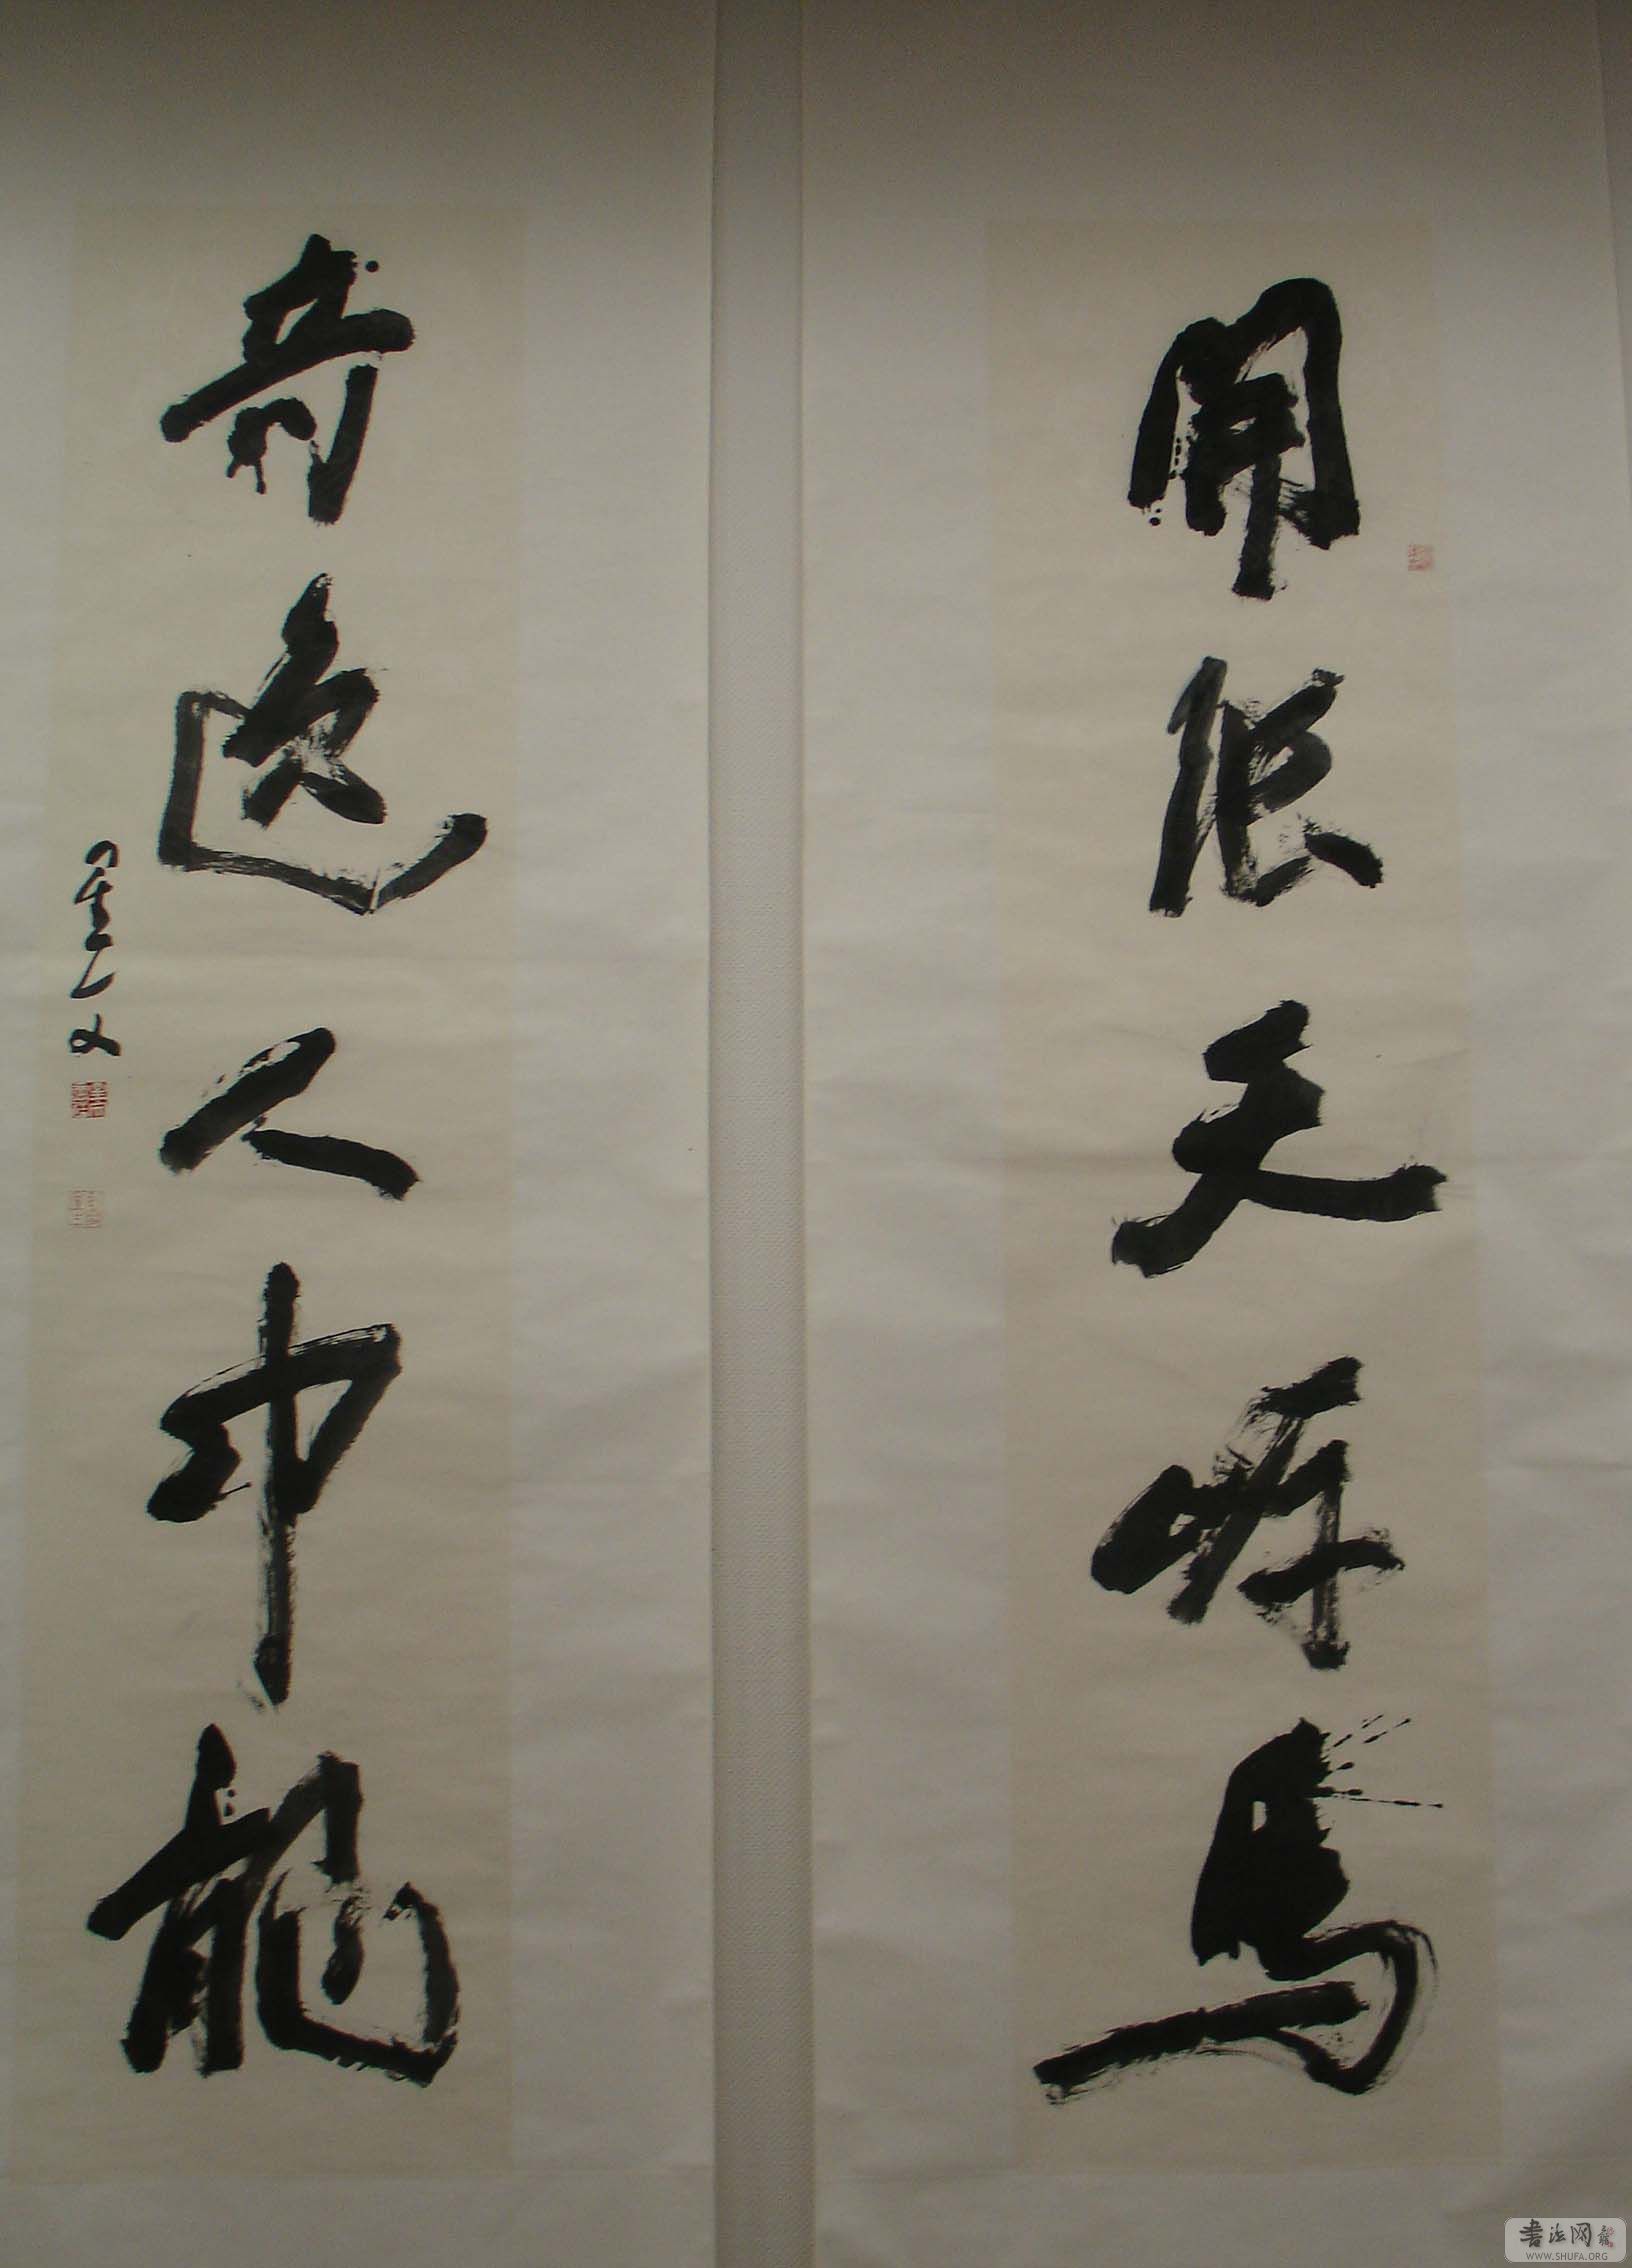 開張天岸馬
奇逸人中龍
書法网
WWW.SHUFA.ORG